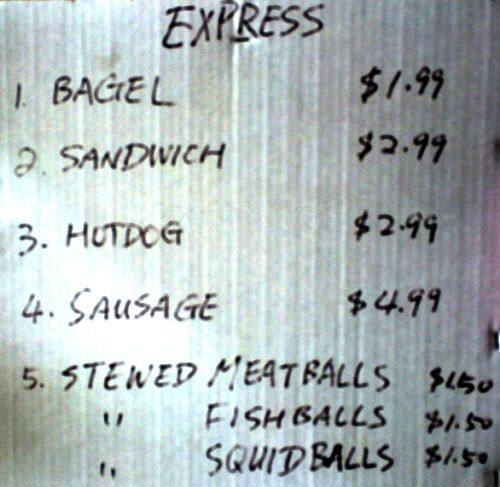 EXPRESS
1. BAGEL $1.99
2. SANDWICH $2.99
3. HOTDOG $2.99
4. SAUSAGE $4.99
5. STEWED MEATBALLS $1.50
" FISHBALLS $1.50
" SQUIDBALLS $1.50